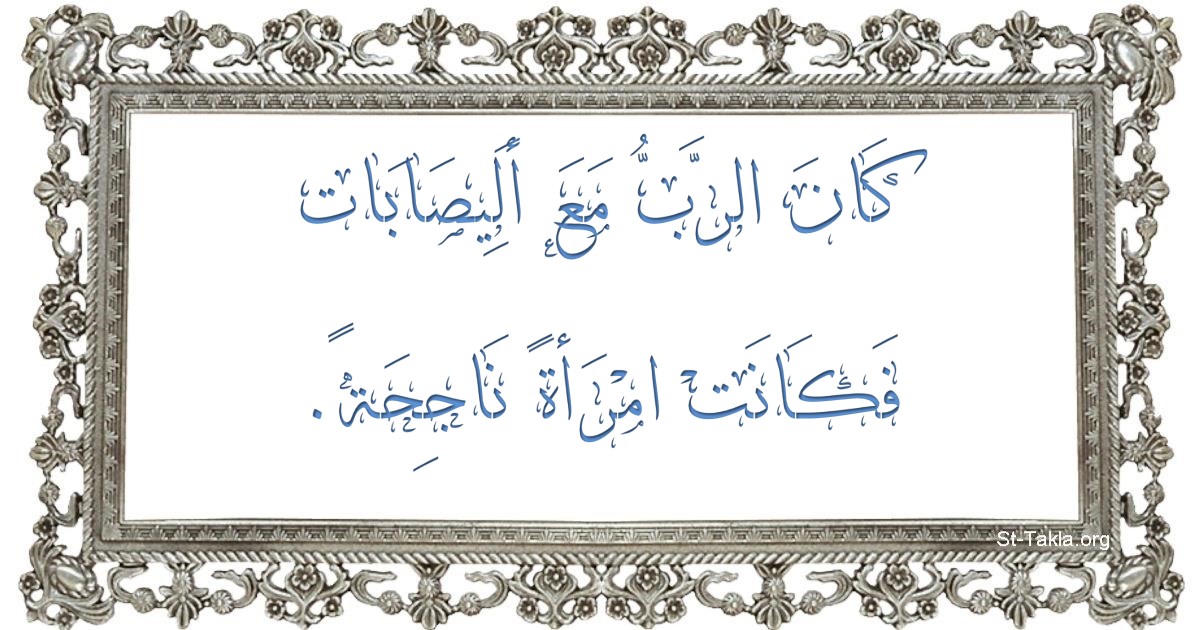 كَانَ الرَّبُّ مَعَ أَلِيصَابَات
فَكَانَتْ امْرَأَةً نَاجِحَةً.
St-Takla.org